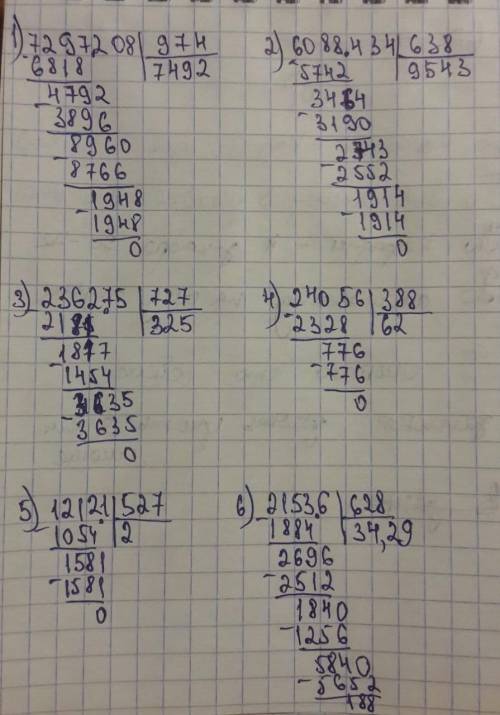 1) 7297208 | 974
- 6818 | 7492
4792
- 3896
8960
- 8766
1948
- 1948
0
2) 6088.434 | 638
- 5742 | 9543
3464
- 3190
2743
- 2552
1914
- 1914
0
3) 236275 | 727
- 2181 | 325
1817
- 1454
3635
- 3635
0
4) 24056 | 388
- 2328 | 62
776
- 776
0
5) 12121 | 527
- 1054 | 2
1581
- 1581
0
6) 21536 | 628
- 1884 | 34,29
2696
- 2512
1840
- 1256
5840
- 5652
188